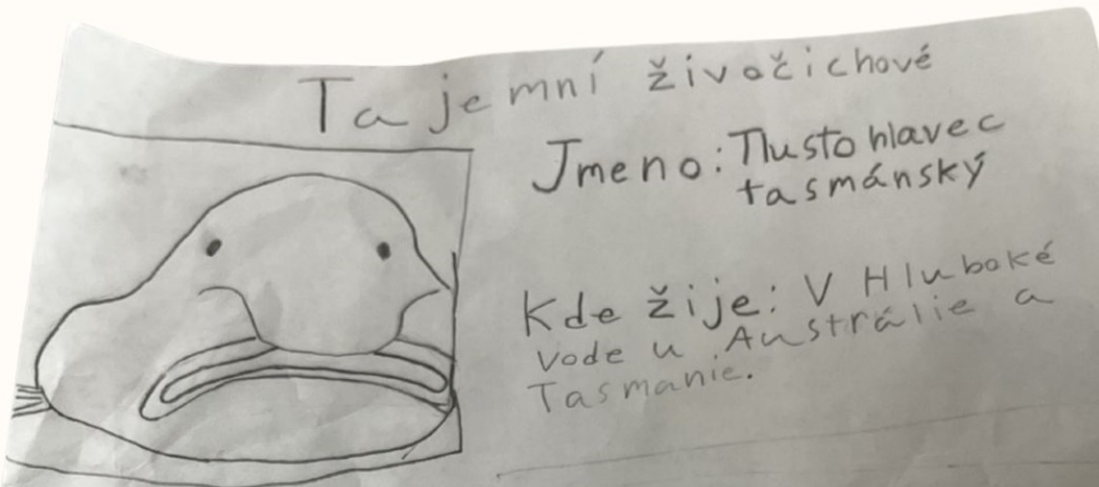 Tajemní živočichové
Jmeno: Tlustohlavec
tasmánský
Kde žije: V Hluboké
vode u Austrálie a
Tasmanie.